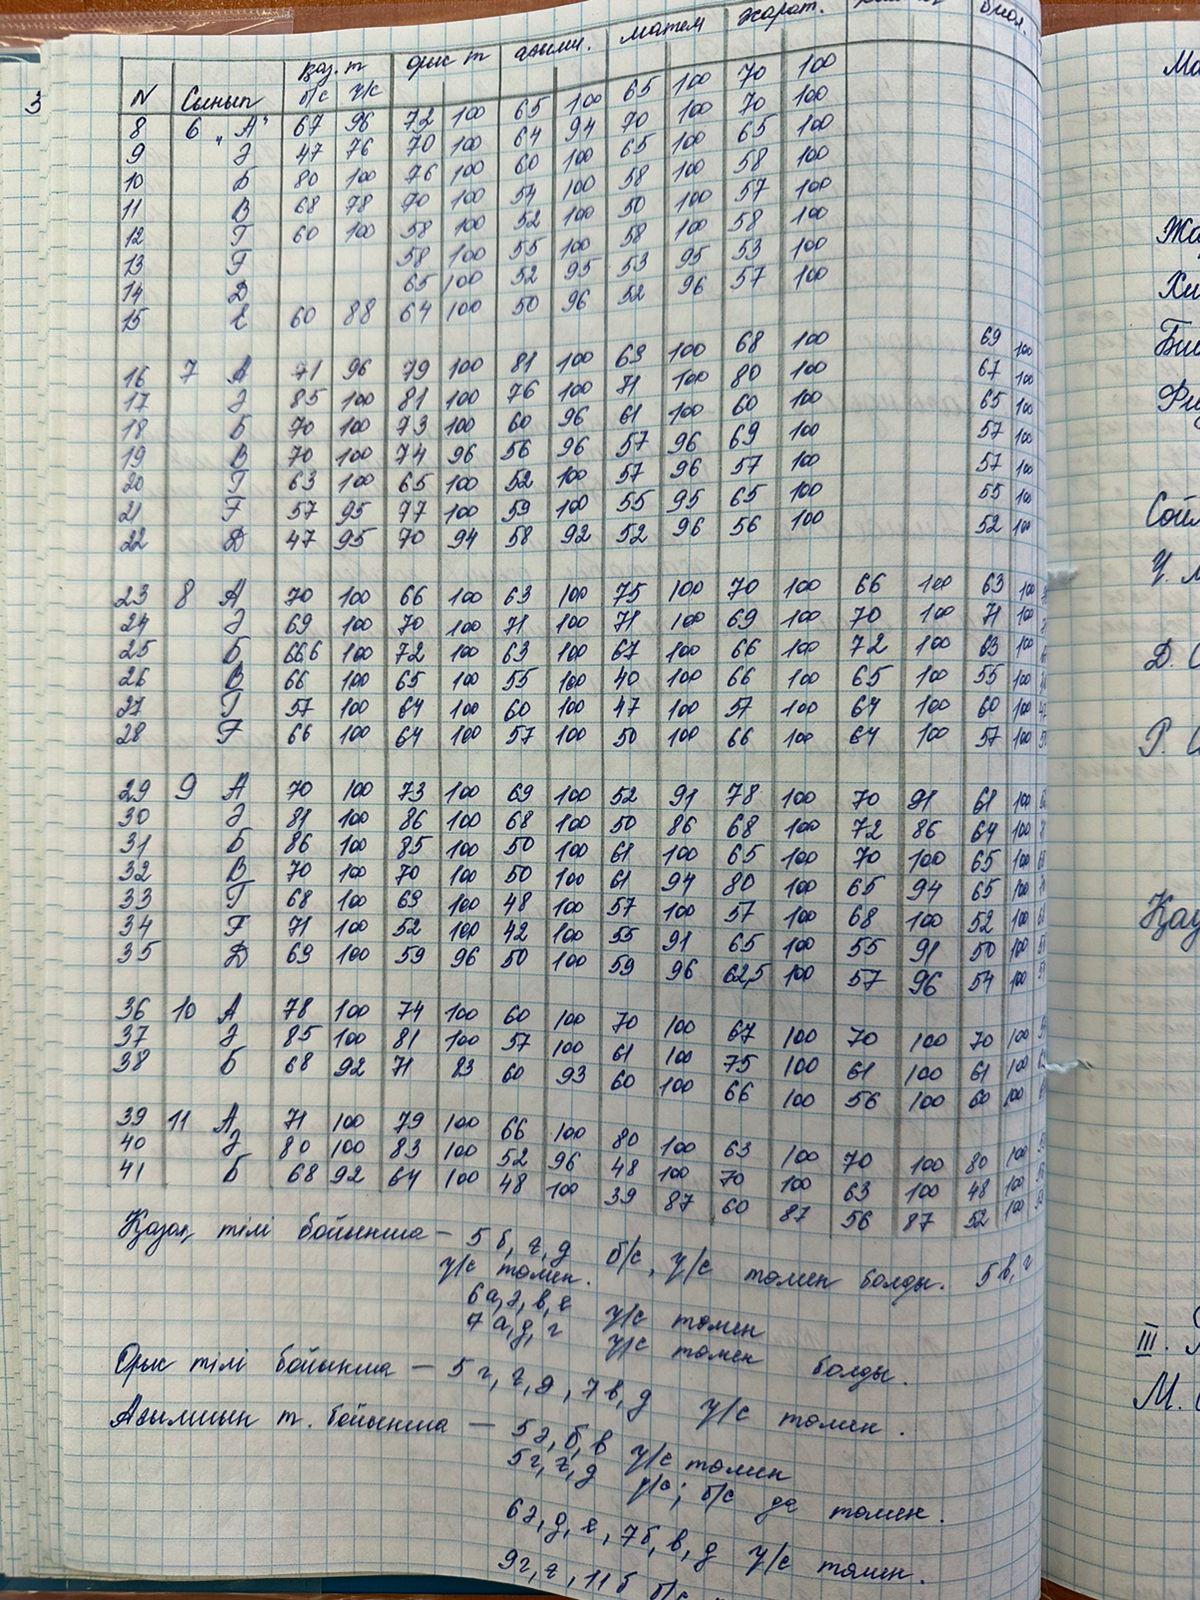 3
Қаз. т орыс т ағылш. матем жарат. биол.
N Сынып б/с ү/с
8 6 „А“ 67 96 72 100 65 100 65 100 70 100
9 Ә 47 76 70 100 64 94 70 100 70 100
10 Б 80 100 76 100 60 100 65 100 65 100
11 В 68 78 70 100 54 100 58 100 58 100
12 Г 60 100 58 100 52 100 50 100 57 100
13 Ғ 58 100 55 100 58 100 58 100
14 Д 65 100 52 95 53 95 53 100
15 Е 60 88 64 100 50 96 52 96 57 100
16 7 А 71 96 79 100 81 100 69 100 68 100 69 100
17 Ә 85 100 81 100 76 100 71 100 80 100 67 100
18 Б 70 100 73 100 60 96 61 100 60 100 65 100
19 В 70 100 74 96 56 96 57 96 69 100 57 100
20 Г 63 100 65 100 52 100 57 96 57 100 57 100
21 Ғ 57 95 77 100 59 100 55 95 65 100 55 100
22 Д 47 95 70 94 58 92 52 96 56 100 52 100
23 8 А 70 100 66 100 63 100 75 100 70 100 66 100 63 100
24 Ә 69 100 70 100 71 100 71 100 69 100 70 100 71 100
25 Б 666 100 72 100 63 100 67 100 66 100 72 100 63 100
26 В 66 100 65 100 55 100 40 100 66 100 65 100 55 100
27 Г 57 100 64 100 60 100 47 100 57 100 64 100 60 100
28 Ғ 66 100 64 100 57 100 50 100 66 100 64 100 57 100
29 9 А 70 100 73 100 69 100 52 91 78 100 70 91 61 100
30 Ә 81 100 86 100 68 100 50 86 68 100 72 86 64 100
31 Б 86 100 85 100 50 100 61 100 65 100 70 100 65 100
32 В 70 100 70 100 50 100 61 94 80 100 65 94 65 100
33 Г 68 100 69 100 48 100 57 100 57 100 68 100 52 100
34 Ғ 71 100 52 100 42 100 55 91 65 100 55 91 50 100
35 Д 69 100 59 96 50 100 59 96 62,5 100 57 96 54 100
36 10 А 78 100 74 100 60 100 70 100 67 100 70 100 70 100
37 Ә 85 100 81 100 57 100 61 100 75 100 61 100 61 100
38 Б 68 92 71 83 60 93 60 100 66 100 56 100 60 100
39 11 А 71 100 79 100 66 100 80 100 63 100 70 100 80 100
40 Ә 80 100 83 100 52 96 48 100 70 100 63 100 48 100
41 Б 68 92 64 100 48 100 39 87 60 87 56 87 52 100
Қазақ тілі бойынша – 5 б, ғ, д б/с, ү/с төмен болды. 5 в, г
ү/с төмен.
6 а, ә, в, е ү/с төмен
7 а, д, ғ ү/с төмен болды.
Орыс тілі бойынша – 5 г, ғ, д, 7 в, д ү/с төмен.
Ағылшын т. бойынша – 5 ә, б, в ү/с төмен
5 г, ғ, д ү/с; б/с да төмен.
6 ә, д, е, 7 б, в, д ү/с төмен.
9 г, ғ, 11 б б/с
Хи
Д.
Р.
III.
М.